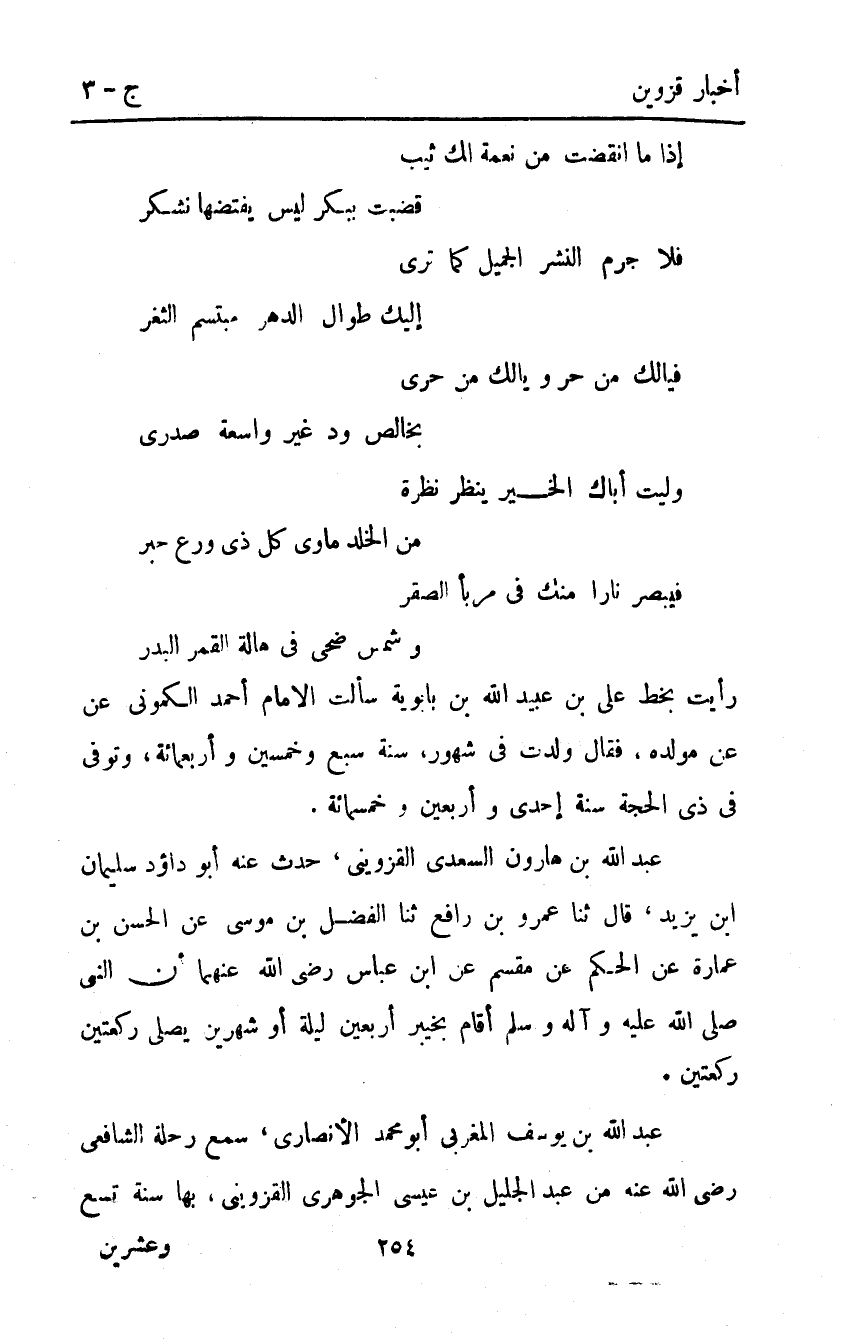 أخبار قزوين ج - ٣
إذا ما انقضت من نعمة الك ثيب
قضبت ببكر ليس يفتضها نشكر
فلا جرم النشر الجميل كما ترى
إليك طوال الدهر مبتسم الثغر
فيالك من حر و يالك من حرى
بخالص ود غير واسعة صدرى
وليت أباك الخير ينظر نظرة
من الخلد ماوى كل ذى ورع حبر
فيبصر نارا منك فى مربأ الصقر
و شمس ضحى فى هالة القمر البدر
رأيت بخط على بن عبيد الله بن بانوية سألت الامام أحمد الكمونى عن
عن مولده ، فقال ولدت فى شهور، سنة سبع وخمسين و أربعمائة ، وتوفى
فى ذى الحجة سنة إحدى و أربعين و خمسمائة .
عبد الله بن هارون السعدى القزوينى ، حدث عنه أبو داؤد سليمان
ابن يزيد ، قال ثنا عمرو بن رافع ثنا الفضل بن موسى عن الحسن بن
عمارة عن الحكم عن مقسم عن ابن عباس رضى الله عنهما أن النبى
صلى الله عليه و آله و سلم أقام بخيبر أربعين ليلة أو شهرين يصلى ركعتين
ركعتين .
عبد الله بن يوسف المغربى أبو محمد الأنصارى ، سمع رحلة الشافعى
رضى الله عنه من عبد الجليل بن عيسى الجوهرى القزوينى ، بها سنة تسع
٢٥٤ وعشرين